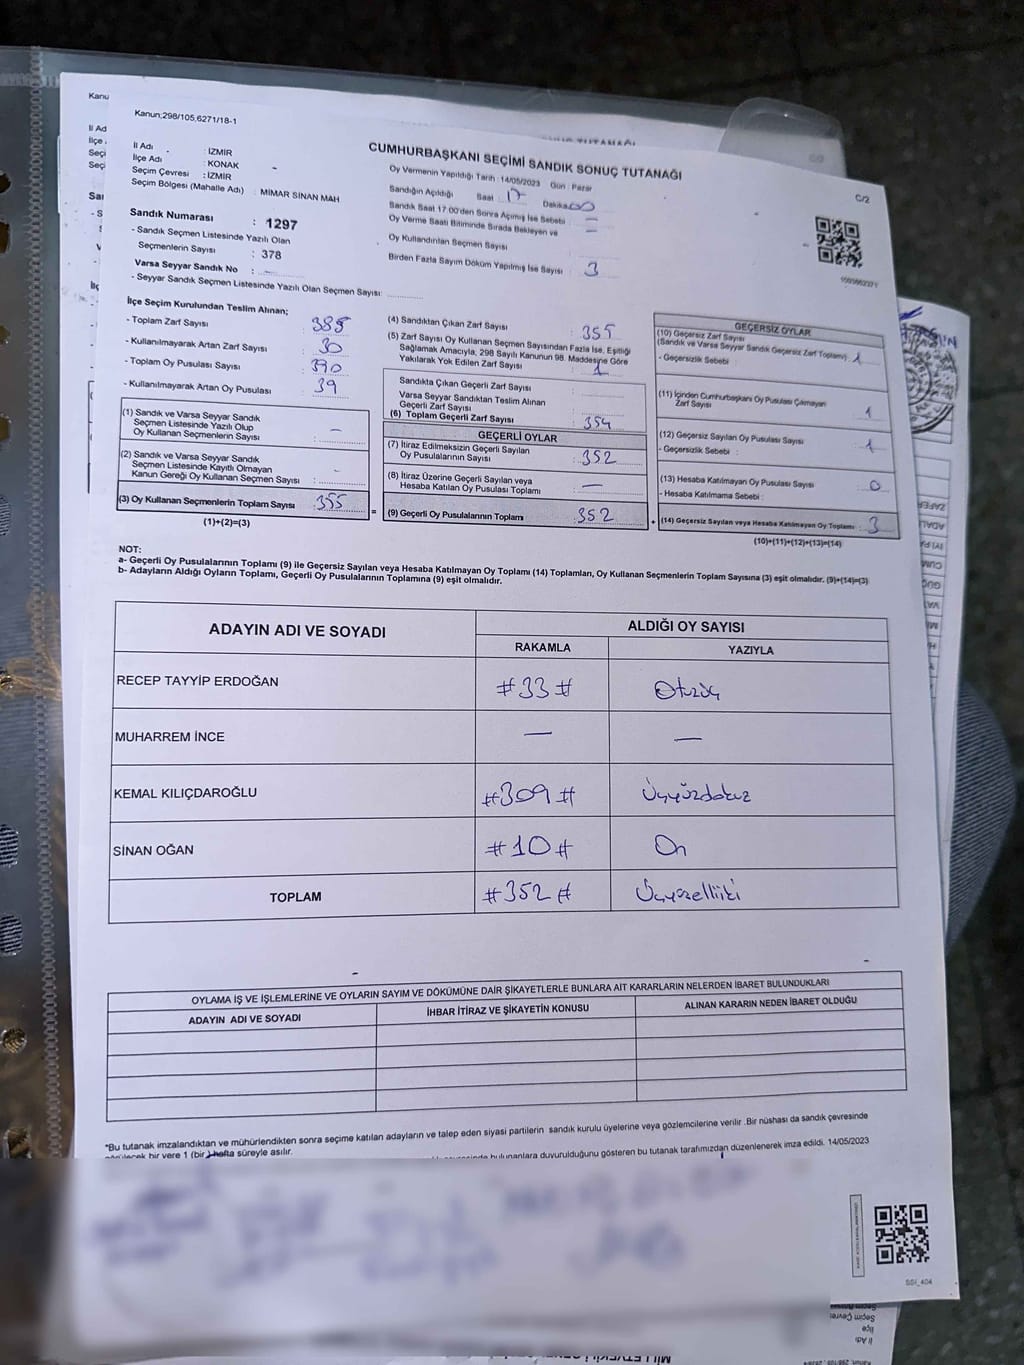 Kanun;298/105,6271/18-1
CUMHURBAŞKANI SEÇİMİ SANDIK SONUÇ TUTANAĞI
C/2
İl Adı : İZMİR
İlçe Adı : KONAK
Seçim Çevresi : İZMİR
Seçim Bölgesi (Mahalle Adı) : MİMAR SİNAN MAH
Sandık Numarası : 1297
- Sandık Seçmen Listesinde Yazılı Olan
Seçmenlerin Sayısı : 378
Varsa Seyyar Sandık No : —
- Seyyar Sandık Seçmen Listesinde Yazılı Olan Seçmen Sayısı:
Oy Vermenin Yapıldığı Tarih : 14/05/2023 Gün : Pazar
Sandığın Açıldığı Saat 17 Dakika 00
Sandık Saat 17.00'den Sonra Açımış İse Sebebi : —
Oy Verme Saati Bitiminde Sırada Bekleyen ve
Oy Kullandırılan Seçmen Sayısı
Birden Fazla Sayım Döküm Yapılmış İse Sayısı : 3
İlçe Seçim Kurulundan Teslim Alınan;
- Toplam Zarf Sayısı : 385
- Kullanılmayarak Artan Zarf Sayısı : 30
- Toplam Oy Pusulası Sayısı : 390
- Kullanılmayarak Artan Oy Pusulası : 39
(1) Sandık ve Varsa Seyyar Sandık
Seçmen Listesinde Yazılı Olup
Oy Kullanan Seçmenlerin Sayısı : —
(2) Sandık ve Varsa Seyyar Sandık
Seçmen Listesinde Kayıtlı Olmayan
Kanun Gereği Oy Kullanan Seçmen Sayısı : -
(3) Oy Kullanan Seçmenlerin Toplam Sayısı : 355
(1)+(2)=(3)
(4) Sandıktan Çıkan Zarf Sayısı : 355
(5) Zarf Sayısı Oy Kullanan Seçmen Sayısından Fazla İse, Eşitliği
Sağlamak Amacıyla, 298 Sayılı Kanunun 98. Maddesine Göre
Yakılarak Yok Edilen Zarf Sayısı : 1
Sandıkta Çıkan Geçerli Zarf Sayısı :
Varsa Seyyar Sandıktan Teslim Alınan
Geçerli Zarf Sayısı :
(6) Toplam Geçerli Zarf Sayısı : 354
GEÇERLİ OYLAR
(7) İtiraz Edilmeksizin Geçerli Sayılan
Oy Pusulalarının Sayısı : 352
(8) İtiraz Üzerine Geçerli Sayılan veya
Hesaba Katılan Oy Pusulası Toplamı : —
= (9) Geçerli Oy Pusulalarının Toplamı : 352
GEÇERSİZ OYLAR
(10) Geçersiz Zarf Sayısı
(Sandık ve Varsa Seyyar Sandık Geçersiz Zarf Toplamı) : 1
- Geçersizlik Sebebi :
(11) İçinden Cumhurbaşkanı Oy Pusulası Çıkmayan
Zarf Sayısı : 1
(12) Geçersiz Sayılan Oy Pusulası Sayısı : 1
- Geçersizlik Sebebi :
(13) Hesaba Katılmayan Oy Pusulası Sayısı : 0
- Hesaba Katılmama Sebebi :
+ (14) Geçersiz Sayılan veya Hesaba Katılmayan Oy Toplamı : 3
(10)+(11)+(12)+(13)=(14)
NOT:
a- Geçerli Oy Pusulalarının Toplamı (9) ile Geçersiz Sayılan veya Hesaba Katılmayan Oy Toplamı (14) Toplamları, Oy Kullanan Seçmenlerin Toplam Sayısına (3) eşit olmalıdır. (9)+(14)=(3)
b- Adayların Aldığı Oyların Toplamı, Geçerli Oy Pusulalarının Toplamına (9) eşit olmalıdır.
ADAYIN ADI VE SOYADI ALDIĞI OY SAYISI
RAKAMLA YAZIYLA
RECEP TAYYİP ERDOĞAN #33# Otuzüç
MUHARREM İNCE — —
KEMAL KILIÇDAROĞLU #309# Üçyüzdokuz
SİNAN OĞAN #10# On
TOPLAM #352# Üçyüzelliiki
OYLAMA İŞ VE İŞLEMLERİNE VE OYLARIN SAYIM VE DÖKÜMÜNE DAİR ŞİKAYETLERLE BUNLARA AİT KARARLARIN NELERDEN İBARET BULUNDUKLARI
ADAYIN ADI VE SOYADI İHBAR İTİRAZ VE ŞİKAYETİN KONUSU ALINAN KARARIN NEDEN İBARET OLDUĞU
*Bu tutanak imzalandıktan ve mühürlendikten sonra seçime katılan adayların ve talep eden siyasi partilerin sandık kurulu üyelerine veya gözlemcilerine verilir .Bir nüshası da sandık çevresinde
görülecek bir yere 1 (bir ) hafta süreyle asılır.
bulunanlara duyurulduğunu gösteren bu tutanak tarafımızdan düzenlenerek imza edildi. 14/05/2023
SSİ_404